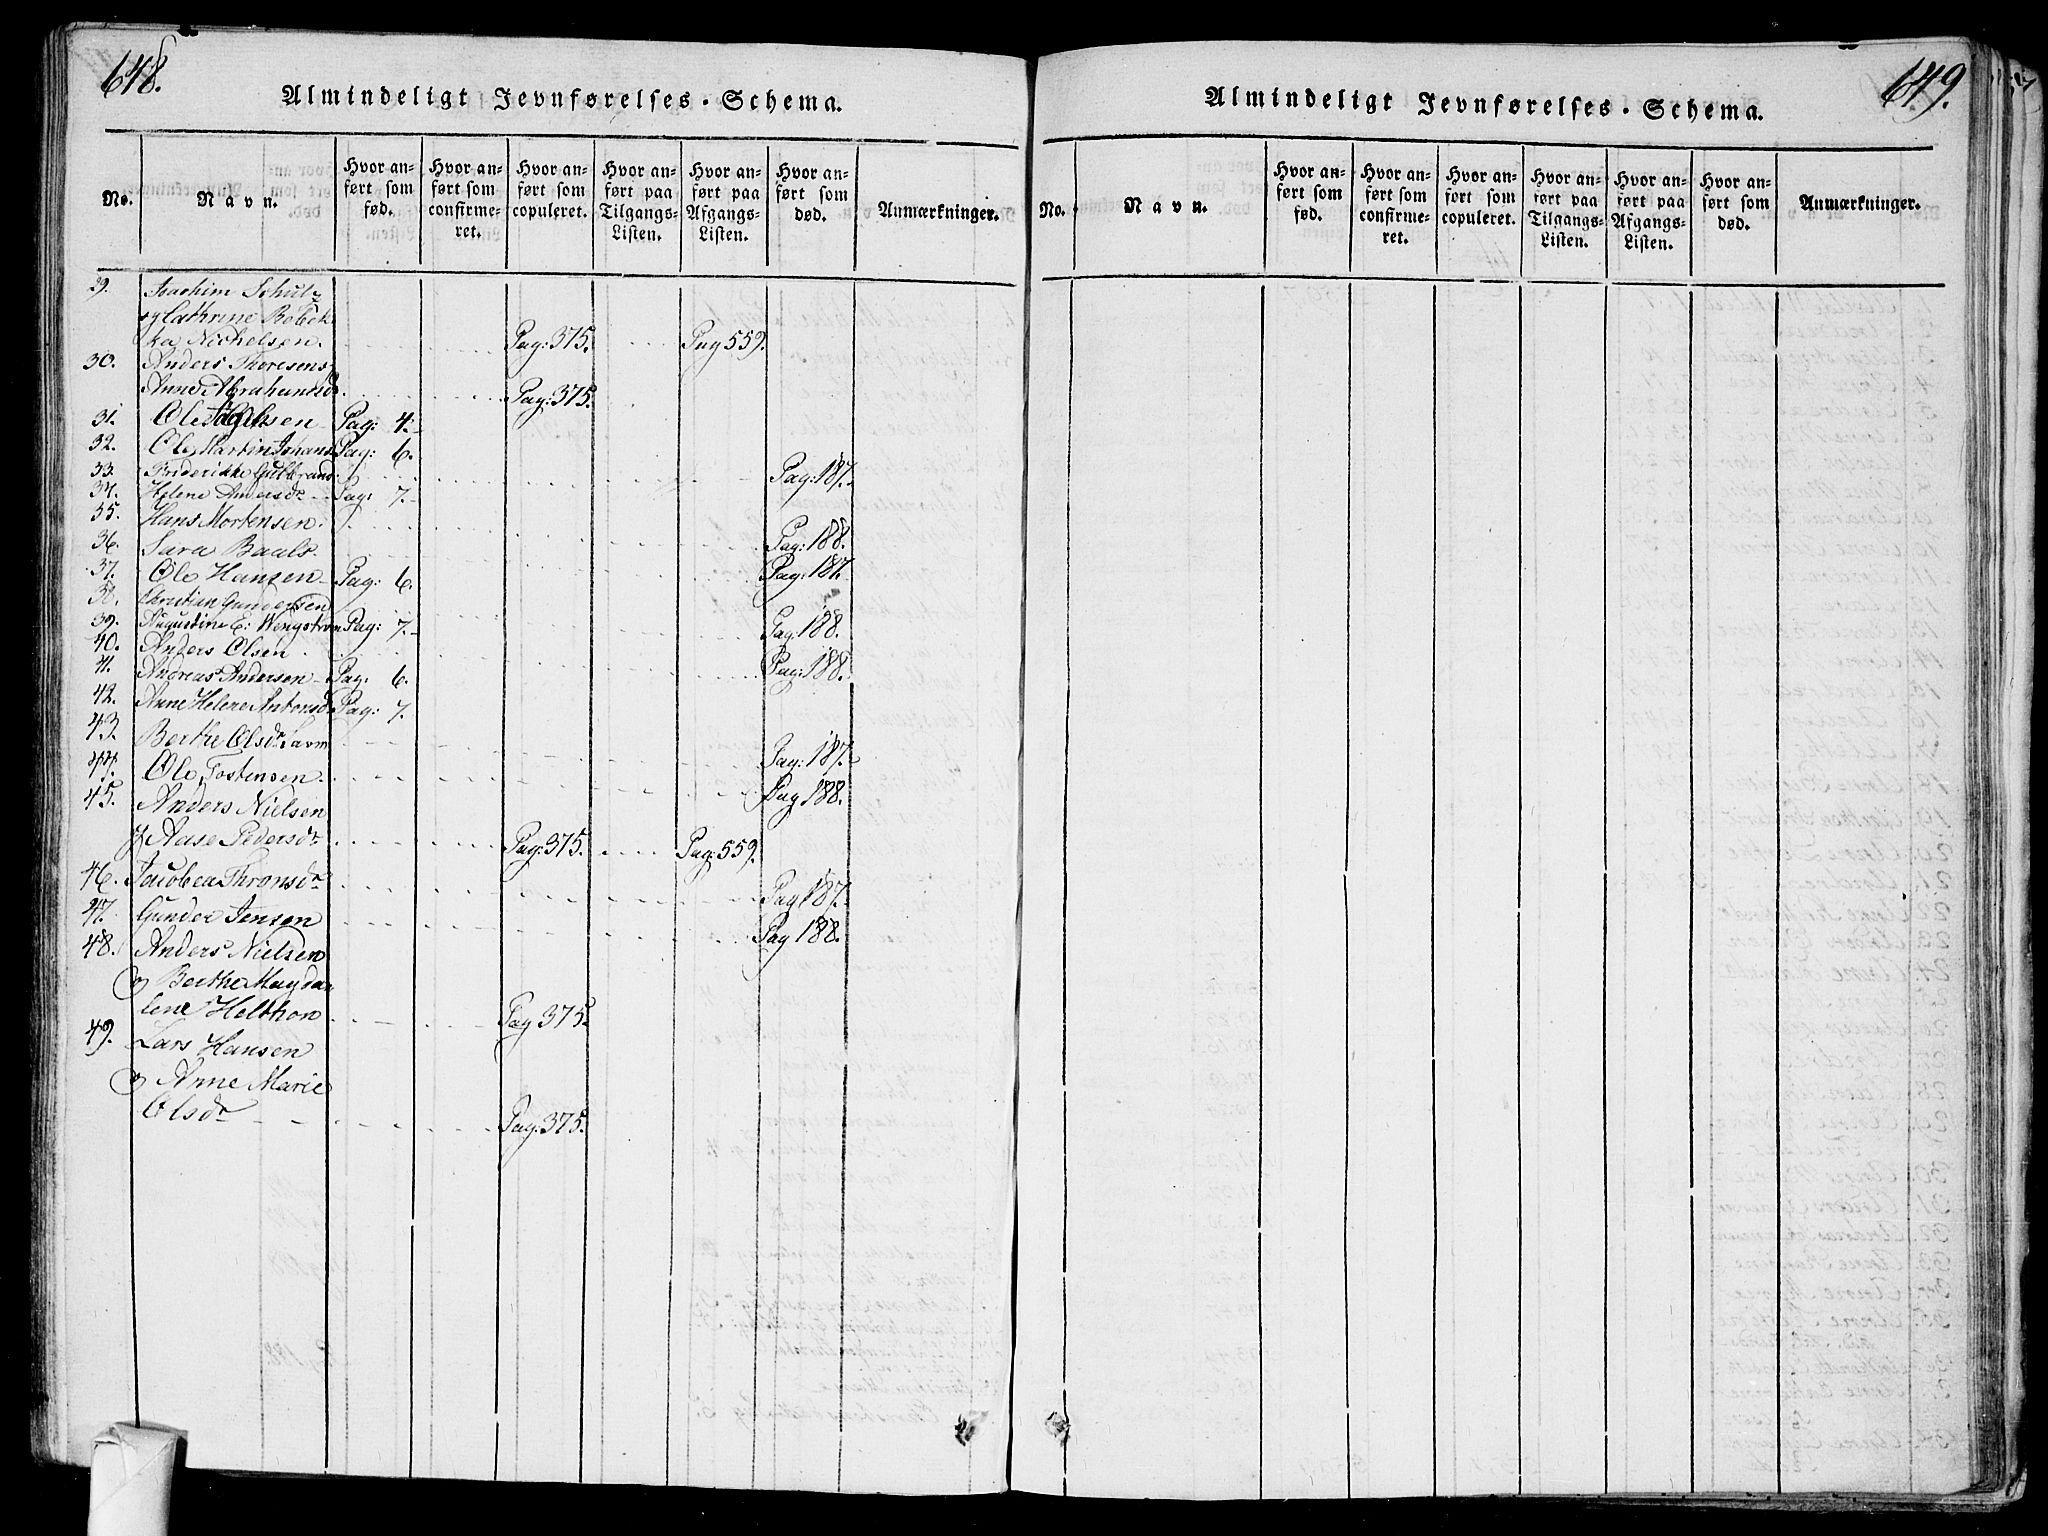 648.
Almindeligt Jevnførelses-Schema.
No.
Navn.
Hvor an-
ført som
fød.
Hvor an-
ført som
confirme-
ret.
Hvor an-
ført som
copuleret.
Hvor an-
ført paa
Tilgangs-
Listen.
Hvor an-
ført paa
Afgangs-
Listen.
Hvor an-
ført som
død.
Anmærkninger.
29. Joachim Schulz
og Cathrine Rebek
ka Nichelsen. Pag: 375. Pag 559.
30. Anders Thoresens
Anne Abrahamsd Pag: 375.
31. Ole Hansen Pag: 4.
32. Ole Martin Johans Pag: 6.
33. Friderikke Gulbrands Pag: 187.
34. Helene Andersdr Pag: 7.
35. Hans Mortensen. Pag: 188.
36. Sara Baals. Pag: 187.
37. Ole Hansen Pag: 6.
38. Christian Gundersen Pag 188.
39. Augustine E: Wengstrom Pag: 7.
40. Anders Olsen. Pag: 188.
41. Andreas Andersen Pag. 6.
42. Anne Helene Antonsd Pag: 7.
43. Berthe Olsdr Pag: 187.
44. Ole Tostensen. Pag 188.
45. Anders Nielsen
og Aase Pedersdr Pag: 375. Pag: 559.
46. Jacobea Thronsdr Pag 187.
47. Gunder Jensen Pag 188.
48. Anders Nielsen
og Berthe Magda
lene Helthon Pag 375.
49. Lars Hansen
og Anne Marie
Olsdr Pag: 375.
649.
Almindeligt Jevnførelses-Schema.
No.
Navn.
Hvor an-
ført som
fød.
Hvor an-
ført som
confirme-
ret.
Hvor an-
ført som
copuleret.
Hvor an-
ført paa
Tilgangs-
Listen.
Hvor an-
ført paa
Afgangs-
Listen.
Hvor an-
ført som
død.
Anmærkninger.